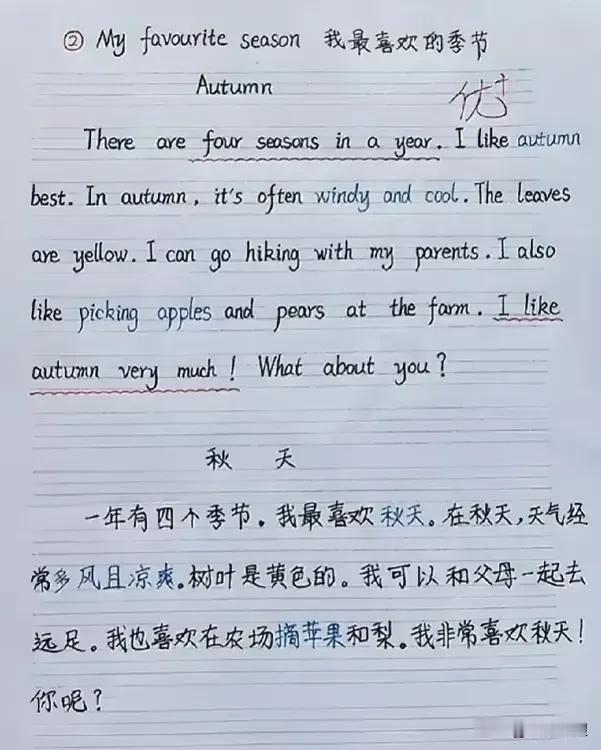 ② My favourite season 我最喜欢的季节
Autumn
优+
There are four seasons in a year. I like autumn
best. In autumn, it's often windy and cool. The leaves
are yellow. I can go hiking with my parents. I also
like picking apples and pears at the farm. I like
autumn very much! What about you?
秋 天
一年有四个季节。我最喜欢秋天。在秋天,天气经
常多风且凉爽。树叶是黄色的。我可以和父母一起去
远足。我也喜欢在农场摘苹果和梨。我非常喜欢秋天!
你呢?